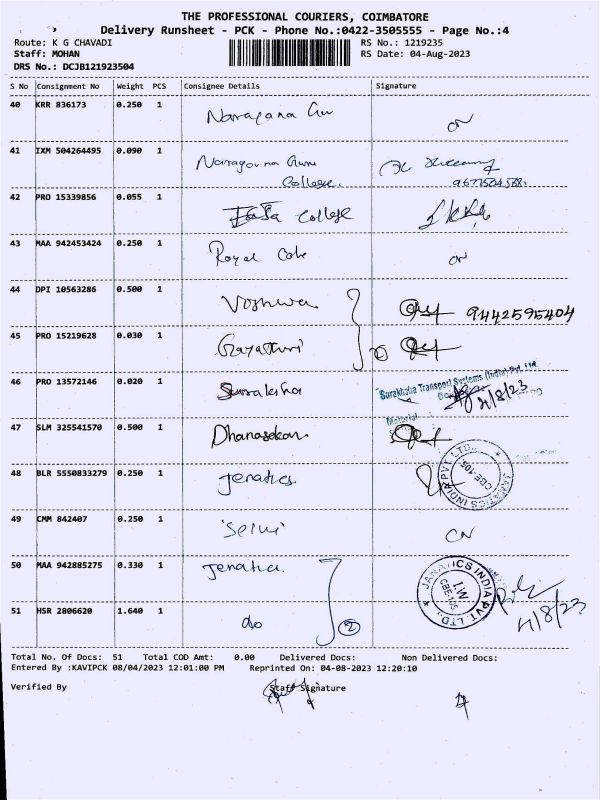 THE PROFESSIONAL COURIERS, COIMBATORE
Delivery Runsheet - PCK - Phone No.:0422-3505555 - Page No.:4
Route: K G CHAVADI RS No.: 1219235
Staff: MOHAN RS Date: 04-Aug-2023
DRS No.: DCJB121923504
S No Consignment No Weight PCS Consignee Details Signature
40 KRR 836173 0.250 1 Narayana Guru
CN
41 IXM 504264495 0.090 1 Narayana Guru
College.
42 PRO 15339856 0.055 1 College
43 MAA 942453424 0.250 1 Royal Cake CN
44 DPI 10563286 0.500 1 Voshwa 9442595404
45 PRO 15219628 0.030 1 Gayathri
46 PRO 13572146 0.020 1 Suraksha Surakhaia Transport Systems (India) Pvt. Ltd.
4/8/23
47 SLM 325541570 0.500 1 Dhanasekar Material
48 BLR 5550833279 0.250 1 Jenatics JANATICS INDIA PVT LTD. CBE-105
49 CMM 842407 0.250 1 'Selvi' CN
50 MAA 942885275 0.330 1 Jenatics JANATICS INDIA PVT LTD. I.W. CBE-105
51 HSR 2806620 1.640 1 do 2 4/8/23
Total No. Of Docs: 51 Total COD Amt: 0.00 Delivered Docs: Non Delivered Docs:
Entered By :KAVIPCK 08/04/2023 12:01:00 PM Reprinted On: 04-08-2023 12:20:10
Verified By Staff Signature